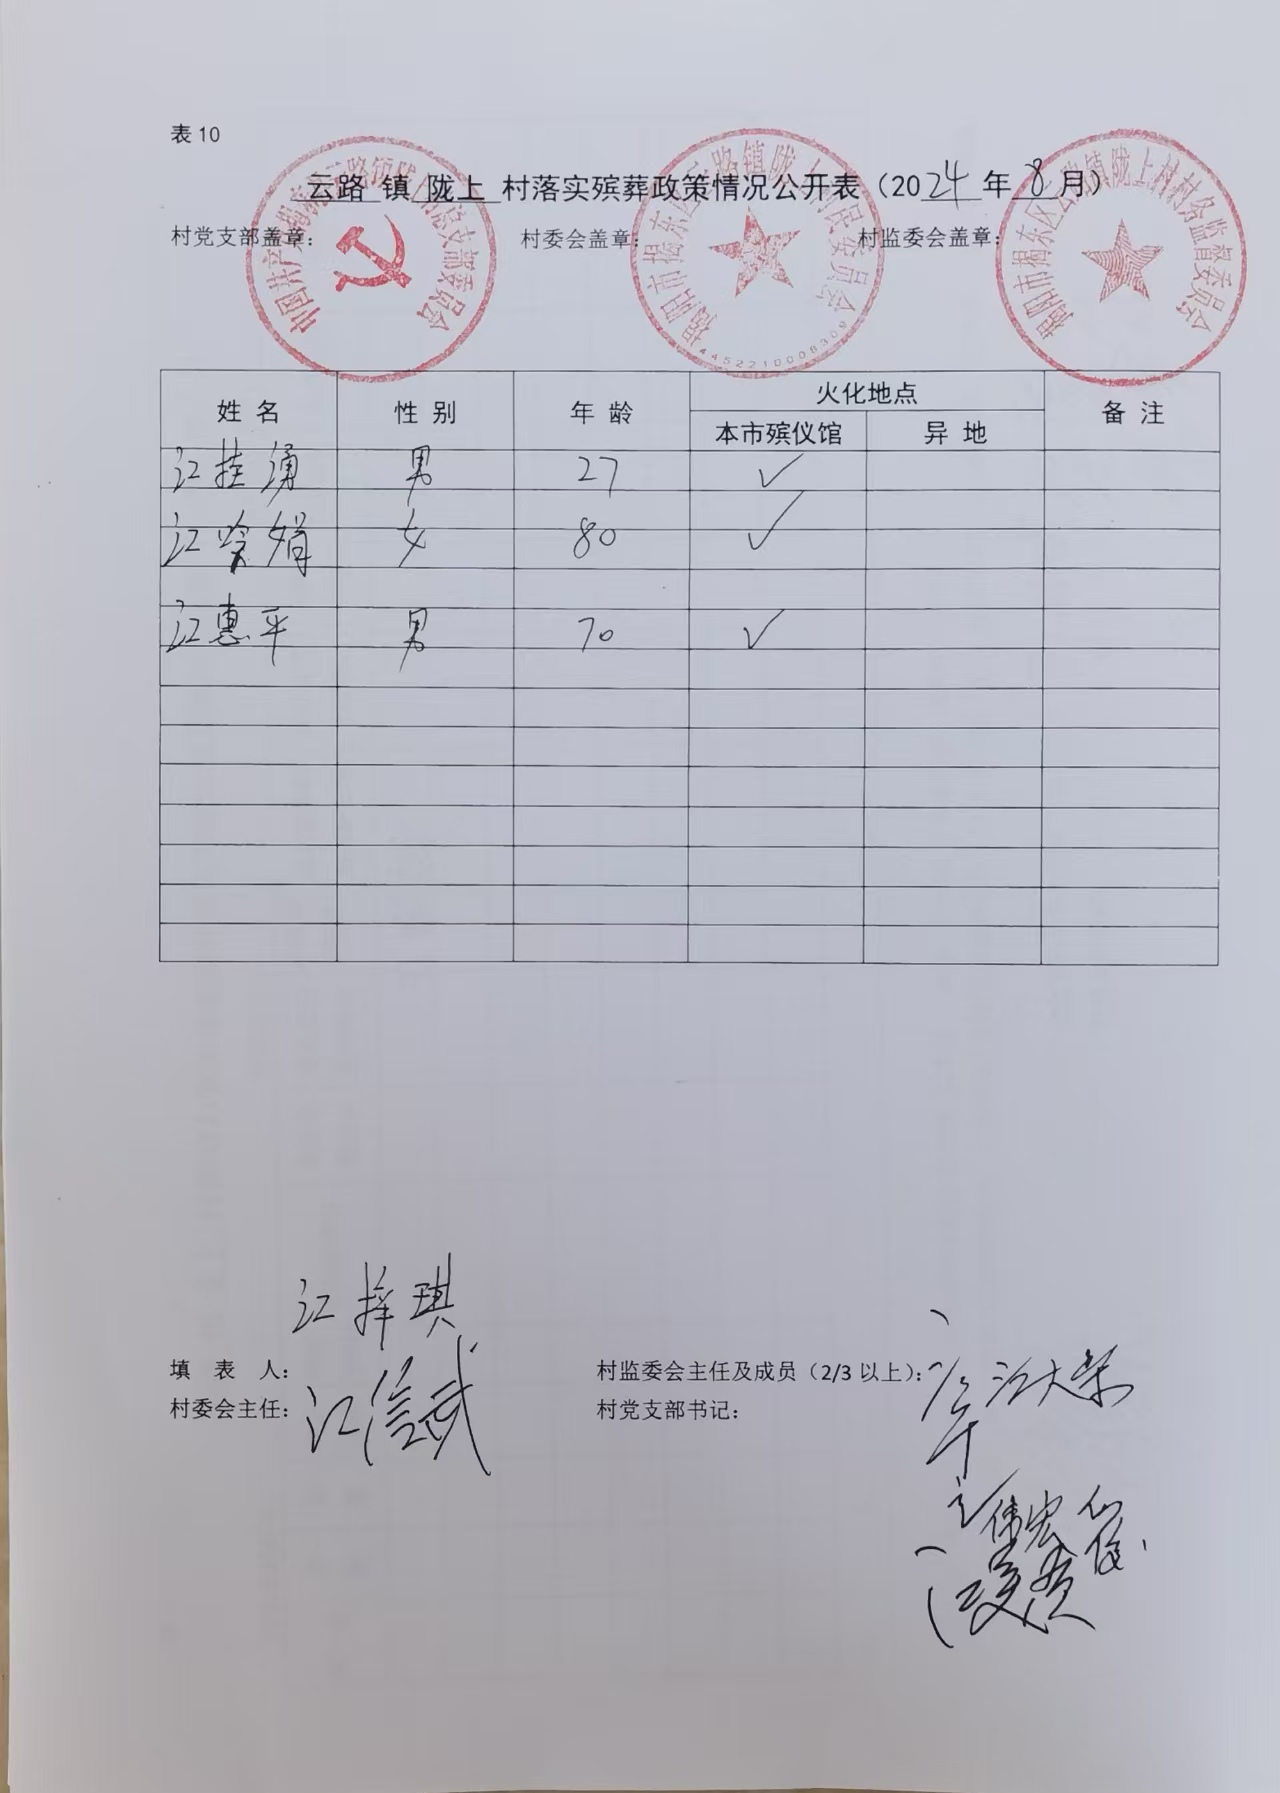 表 10
云路 镇 陇上 村落实殡葬政策情况公开表（2024 年 8 月）
村党支部盖章： 村委会盖章： 村监委会盖章：
揭阳市揭东区云路镇陇上村民委员会
4452210008309
揭阳市揭东区云路镇陇上村村务监督委员会
姓 名 性 别 年 龄 火化地点 备 注
本市殡仪馆 异 地
江 男 27 ✓
江 娟 女 80 ✓
江惠平 男 70 ✓
江 琪
填 表 人： 村监委会主任及成员（2/3 以上）： 江大荣
村委会主任： 江信武 村党支部书记：
伟宏